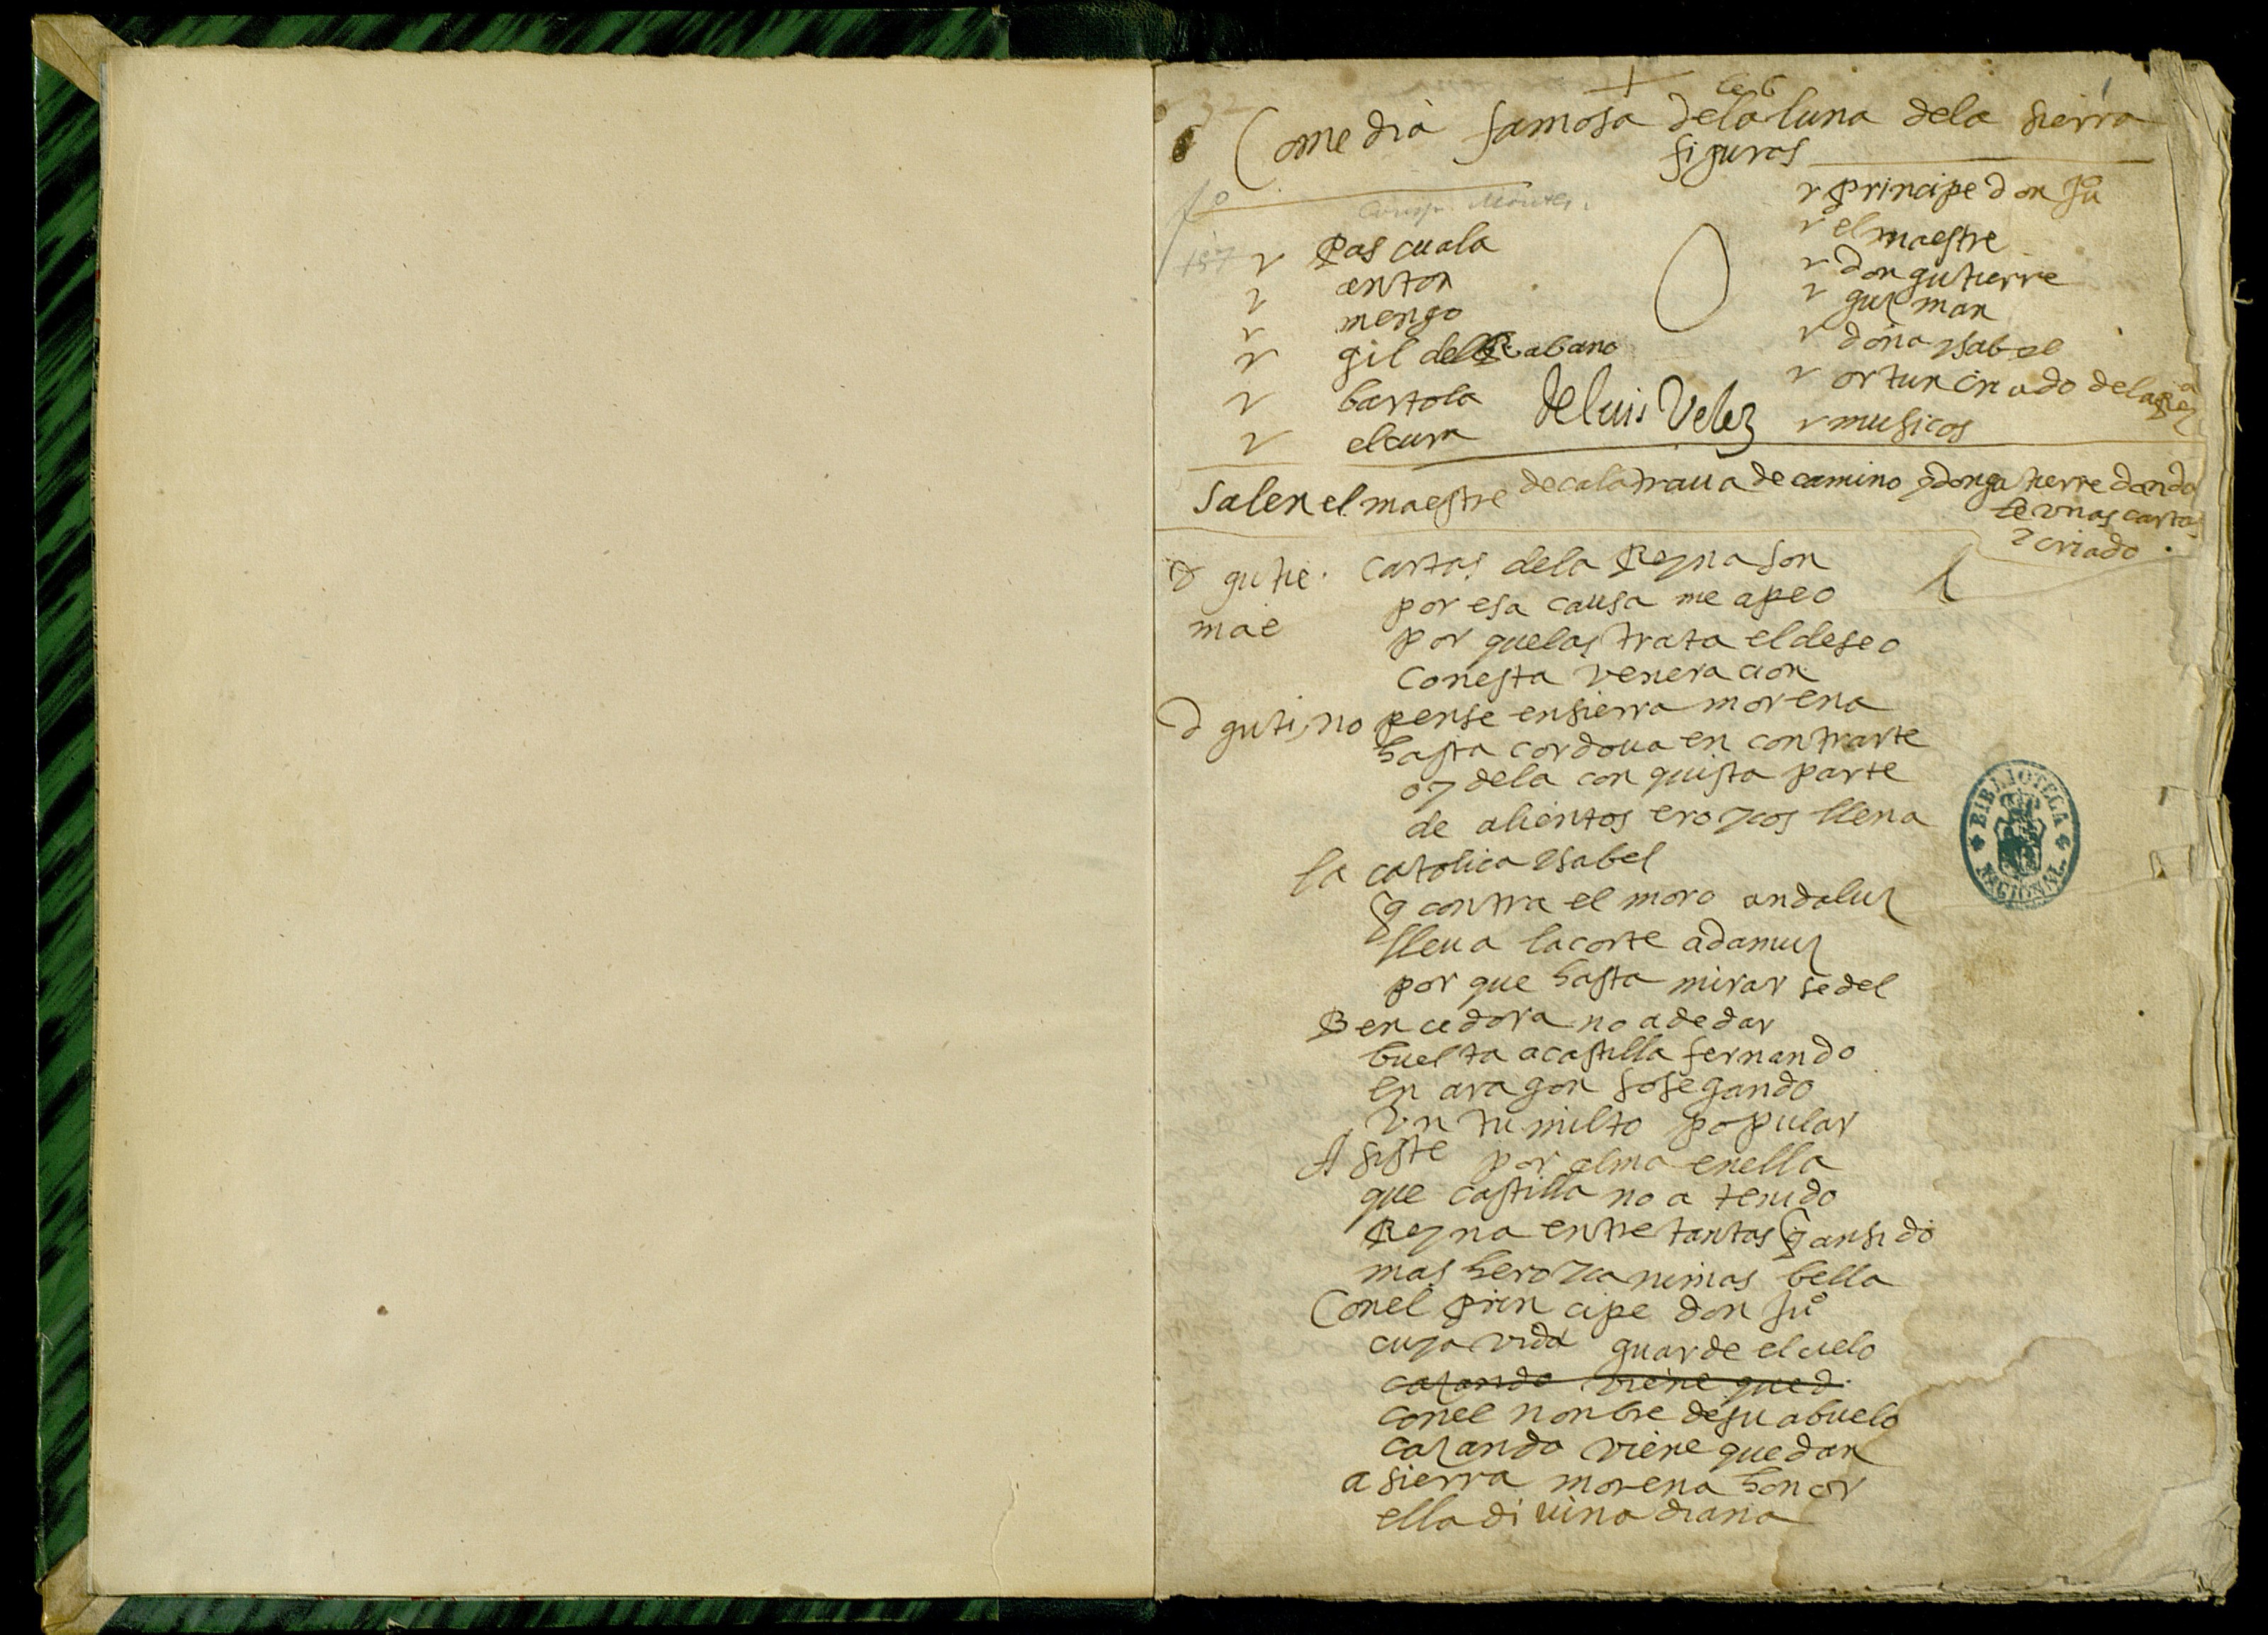 Comedia famosa dela luna dela sierra
figuras
Pascuala
anton
mengo
gil del Rabano
bartola
el cura
principe don Juº
el maestre
don gutierre
guzman
doña ysabel
ortun criado dela
musicos
de luis Velez
Salen el maestre de calatraua de camino y don gutierre dando
le vnas cartas
y criado
d gutie. Cartas dela Reyna son
mae por esa causa me apeo
por quelas trata el deseo
Con esta veneracion
d guti, no pense en sierra morena
hasta cordoua en contrarte
oy dela con quista parte
de alientos eroycos llena
la catolica ysabel
q contra el moro andaluz
lleua la corte adamuz
por que hasta mirar se del
Bencedora no a de dar
buelta a castilla fernando
en aragon sosegando
vn tumulto popular
Asiste por alma en ella
que castilla no a tenido
Reyna entre tantas q an sido
mas heroyca ni mas bella
Con el principe don Juº
cuya vida guarde el cielo
cazando viene que d
con el nonbre de su abuelo
cazando viene que dan
a sierra morena honor
ella di uina diana
BIBLIOTECA NACIONAL